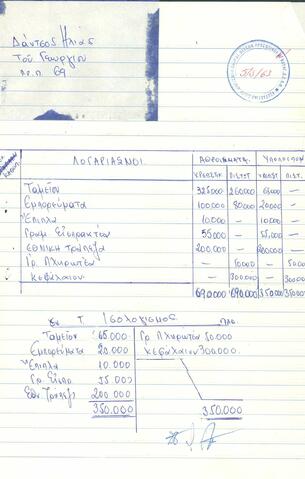 Δάντσος Ηλίας
Του Γεωργίου
Α.Π. 69
515/63
ΛΟΓΑΡΙΑΣΜΟΙ ΑΘΡΟΙΣΜΑΤΑ ΥΠΟΛΟΙΠΩΝ
ΧΡΕΩΣΤ ΠΙΣΤΩΤ ΧΡΕΩΣΤ ΠΙΣΤ.
Ταμείον 325000 260.000 65000 —
Εμπορεύματα 100.000 80.000 20000 —
Έπιπλα 10.000 — 10.000 —
Γραμ. Εισπρακτέων 55000 — 55.000 —
Εθνική Τράπεζα 200.000 — 200000 —
Γρ. Πληρωτέων — 50.000 — 50.00
Κεφάλαιον — 300.000 — 30000
690.000 690.000 350.000 350.00
Ισολογισμός
Ταμείον 65.000 Γρ. Πληρωτέων 50.000
Εμπορεύματα 20.000 Κεφάλαιον 300.000
Έπιπλα 10.000
Γρ. Εισπρ 55.000
Εθν Τράπεζα 200.000
350.000 350.000